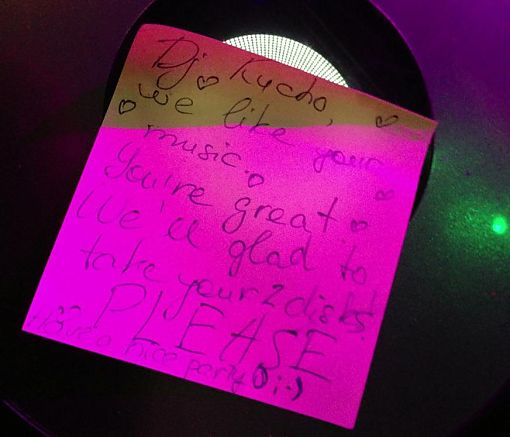 Dj ♡ Kucho,
♡ we like your
music. ♡
You're great ♡
We'll glad to
take your 2 disks!
PLEASE
Have a nice party ;-)